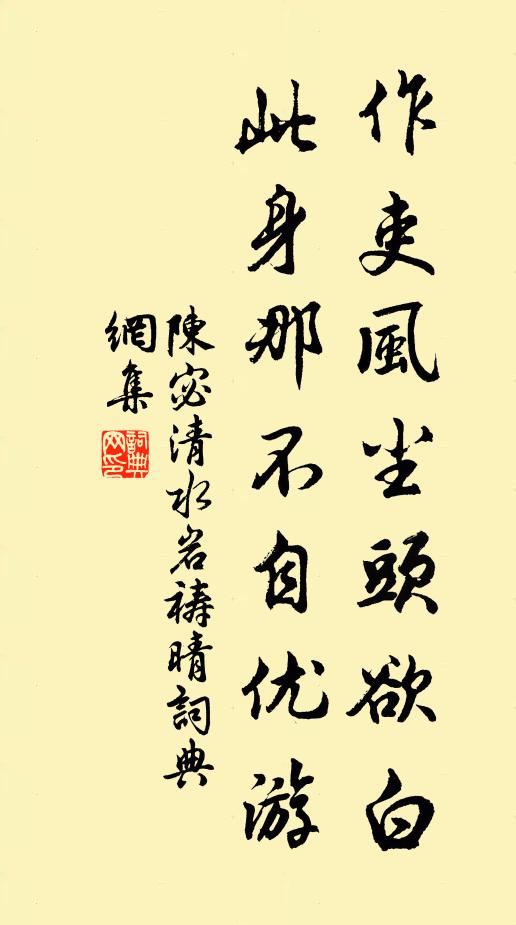 作吏風尘頭欲白
此身那不自优游
陳宓清水岩祷晴詞典
網集
詞典网印